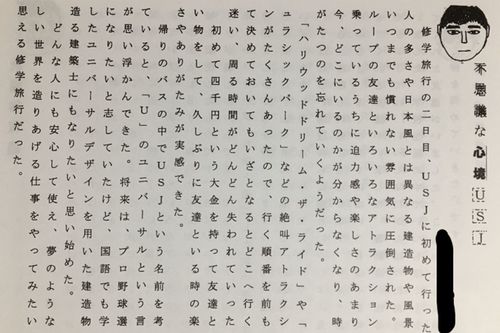 不思議な心境USJ
修学旅行の二日目、ＵＳＪに初めて行った
人の多さや日本風とは異なる建造物や風景
いつまでも慣れない雰囲気に圧倒された。
ループの友達といろいろなアトラクション
乗っているうちに迫力感や楽しさのあまり
今、どこにいるのかが分からなくなり、時
がたつのを忘れていくようだった。
「ハリウッドドリーム・ザ・ライド」や「
ュラシックパーク」などの絶叫アトラクシ
ンがたくさんあったので、行く順番を前も
て決めておいてもいざとなるとどこへ行く
迷い、周る時間がどんどん失われていった
初めて四千円という大金を持って友達と
い物をして、久しぶりに友達といる時の楽
さやありがたみが実感できた。
帰りのバスの中でＵＳＪという名前を考
ていると、「Ｕ」のユニバーサルという言
が思い浮かんできた。将来は、プロ野球選
になりたいと志していたけど、国語でも学
したユニバーサルデザインを用いた建造物
造る建築士にもなりたいと思い始めた。
どんな人にも安心して使え、夢のような
しい世界を造りあげる仕事をやってみたい
思える修学旅行だった。